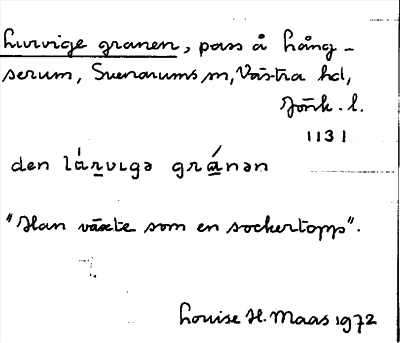 hurvige granen, pass å hång-
serum, Svenarums sn, Västra hd,
Jönk. l.
1131
den lárvıgə gránən
"Han växte som en sockertopp".
Louise H. Maas 1972